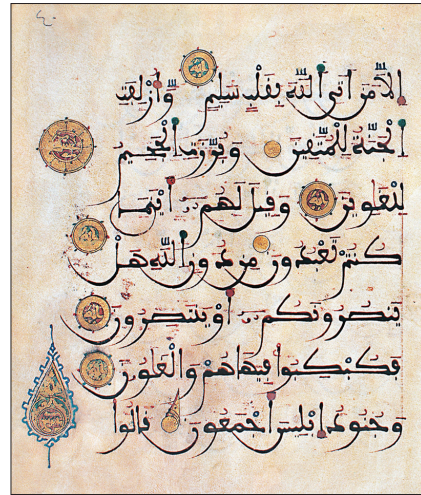 إلا من أتى الله بقلب سليم وأزلفت
الجنة للمتقين وبرزت الجحيم
للغاوين وقيل لهم أينما
كنتم تعبدون من دون الله هل
ينصرونكم أو ينتصرون
فكبكبوا فيها هم والغاون
وجنود إبليس أجمعون قالوا